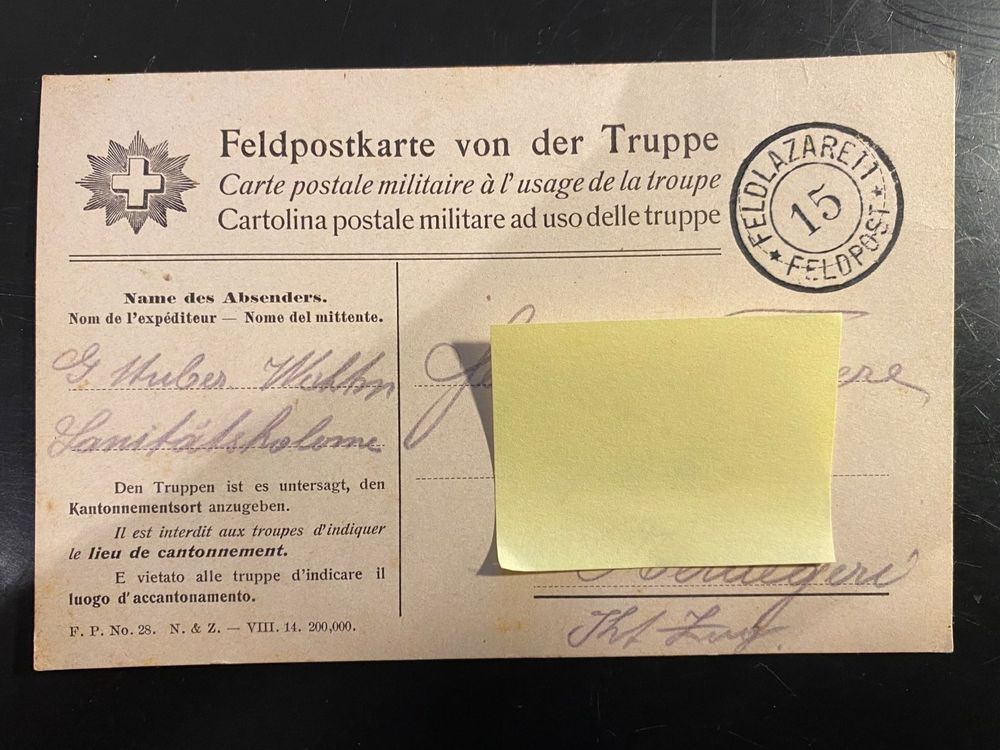 Feldpostkarte von der Truppe
Carte postale militaire à l'usage de la troupe
Cartolina postale militare ad uso delle truppe
FELDLAZARETT
15
FELDPOST
Name des Absenders.
Nom de l'expéditeur — Nome del mittente.
G Huber
Sanitätskolonne
Den Truppen ist es untersagt, den
Kantonnementsort anzugeben.
Il est interdit aux troupes d'indiquer
le lieu de cantonnement.
E vietato alle truppe d'indicare il
luogo d'accantonamento.
F. P. No. 28. N. & Z. — VIII. 14. 200,000.
Kt Zug